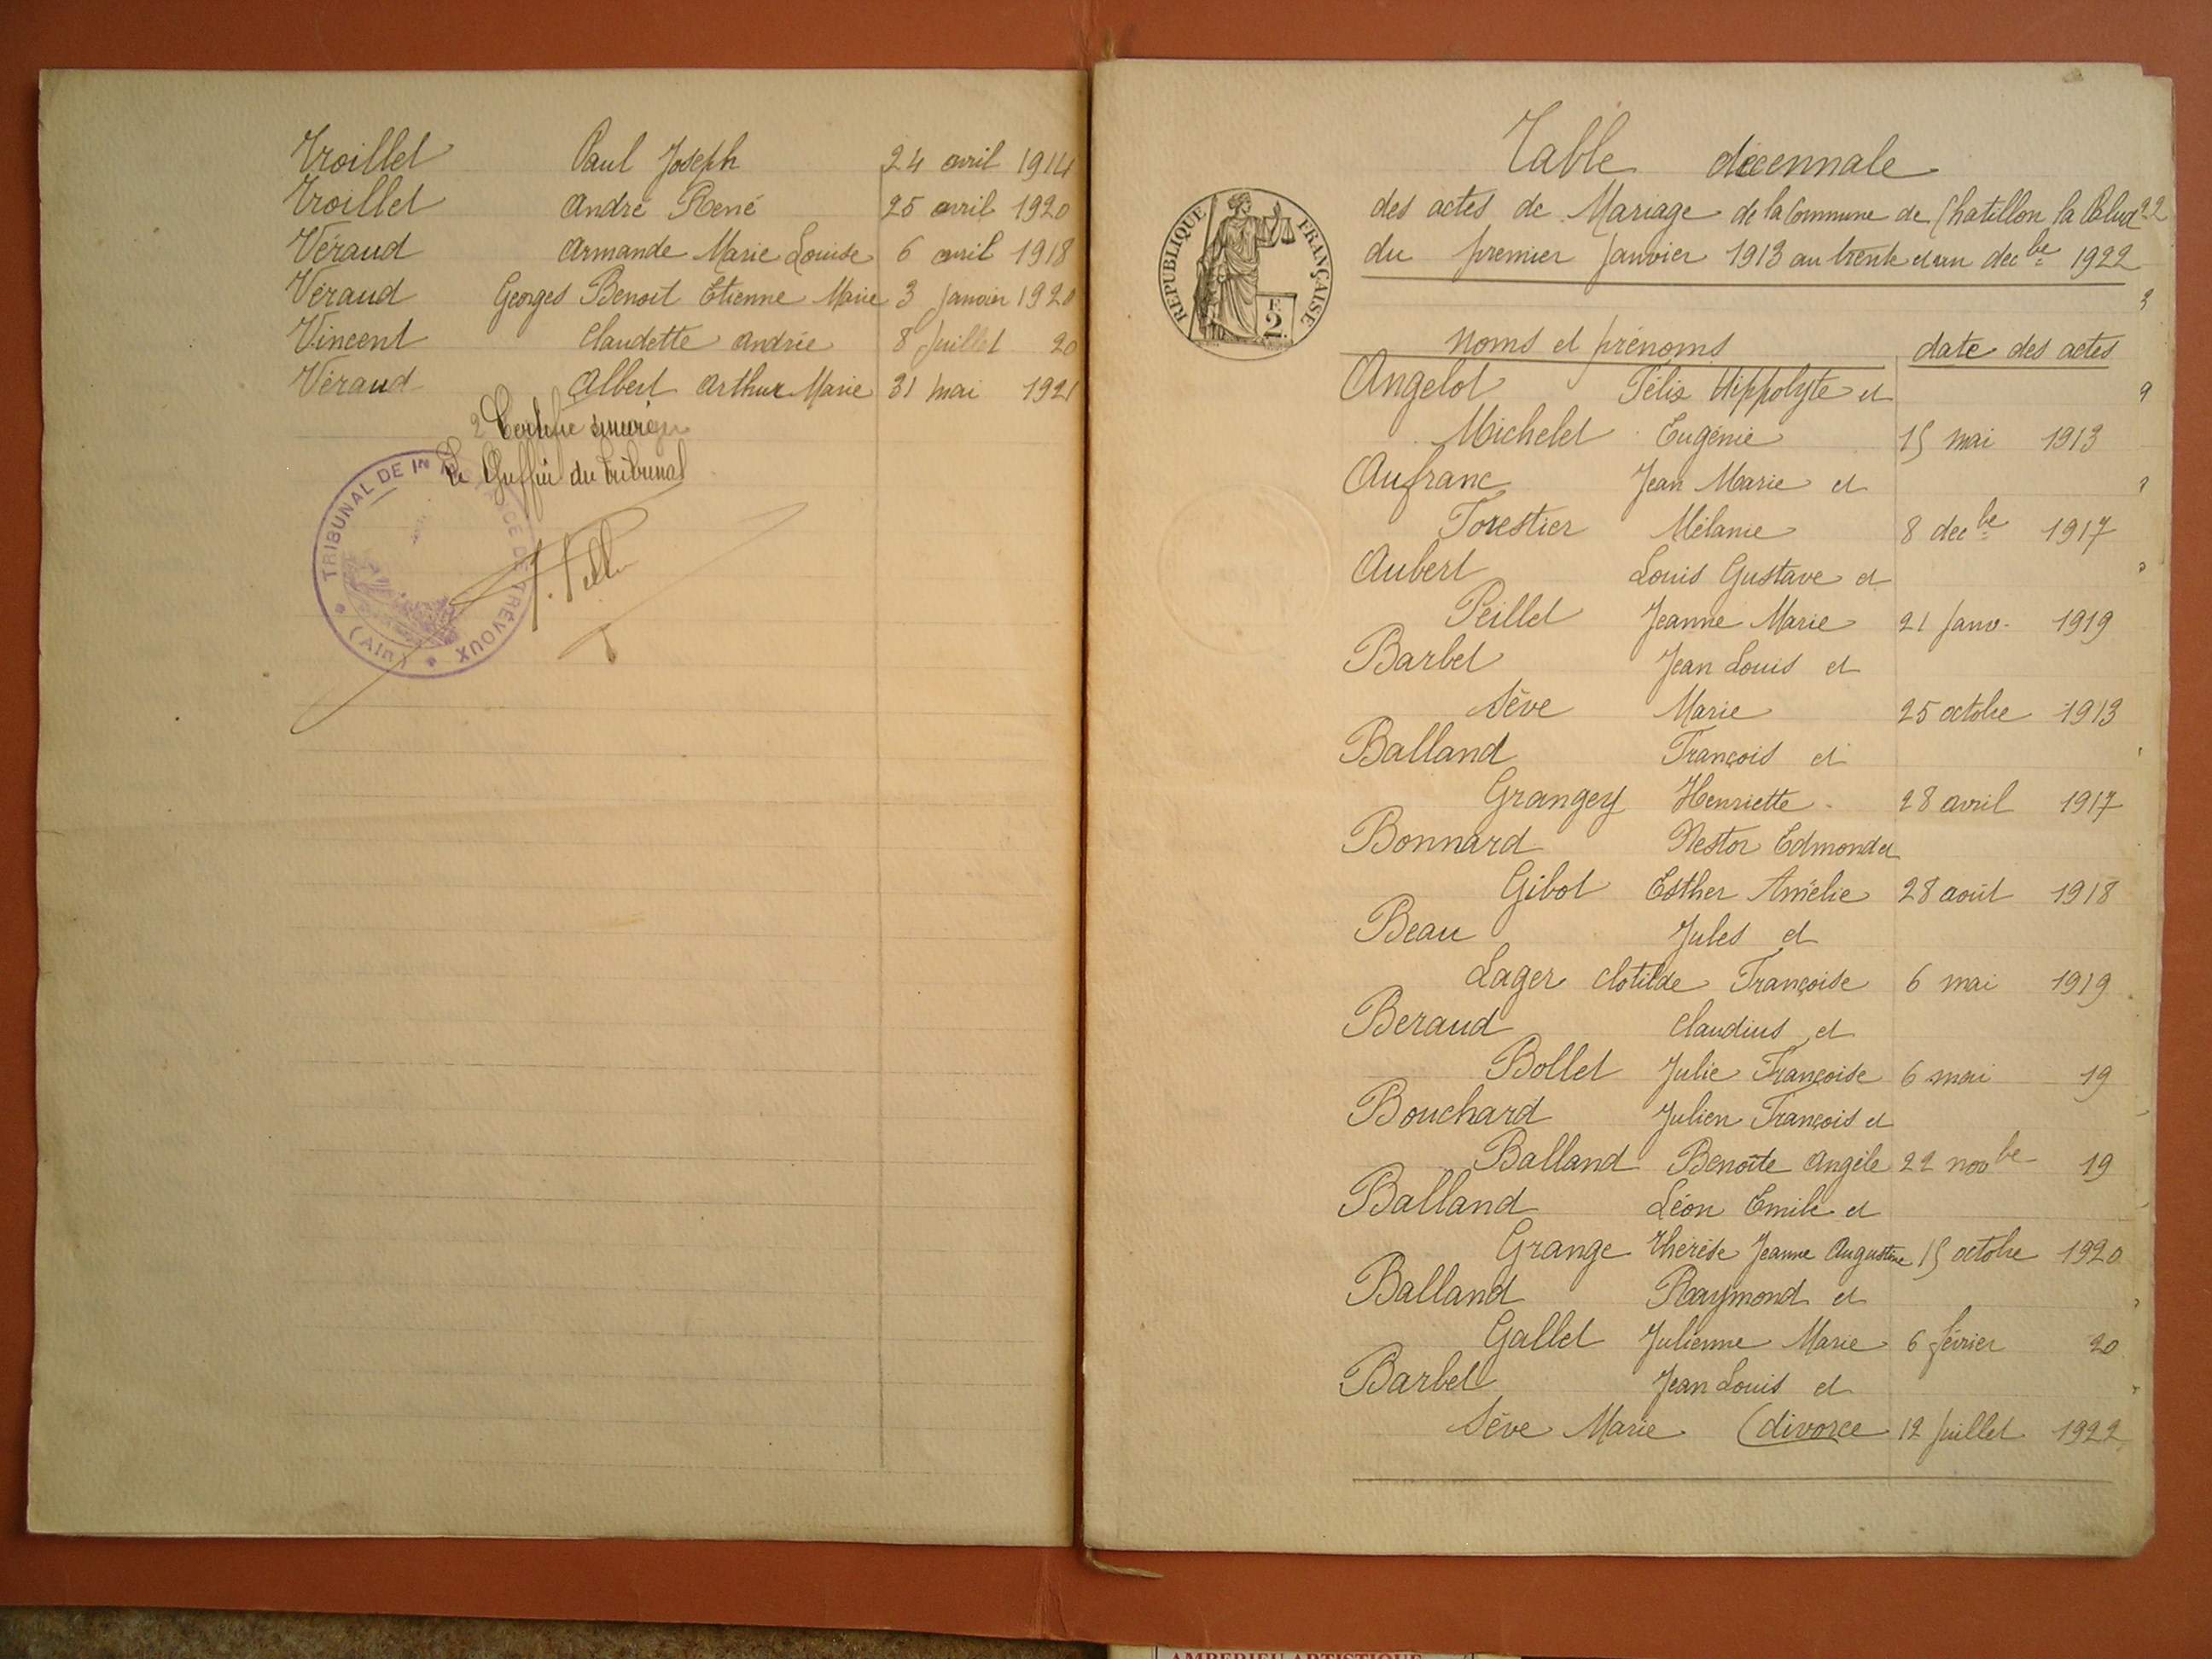 Troillet Paul Joseph 24 avril 1914
Troillet André René 25 avril 1920
Véraud Armande Marie Louise 6 avril 1918
Véraud Georges Benoit Etienne Marie 3 Janvier 1920
Vincent Claudette Andrée 8 Juillet 20
Véraud Albert Arthur Marie 31 mai 1921
Certifié
Le Greffier du Tribunal
TRIBUNAL DE INSTANCE DE TRÉVOUX
(AIN)
Table décennale
des actes de Mariage de la Commune de Chatillon la Palud
du premier Janvier 1913 au trente et un decbe 1922
RÉPUBLIQUE FRANÇAISE
F.
2
Noms et prénoms date des actes
Angelot Félix Hippolyte et
Michelet Eugénie 15 mai 1913
Aufranc Jean Marie et
Forestier Mélanie 8 decbe 1917
Aubert Louis Gustave et
Peillet Jeanne Marie 21 Janv. 1919
Barbet Jean Louis et
Sève Marie 25 octobre 1913
Balland François et
Grangey Henriette 28 avril 1917
Bonnard Nestor Edmond et
Gibot Esther Amélie 28 août 1918
Beau Jules et
Lager Clotilde Françoise 6 mai 1919
Beraud Claudius et
Bollet Julie Françoise 6 mai 19
Bouchard Julien François et
Balland Benoîte Angèle 22 novbe 19
Balland Léon Emile et
Grange Thérèse Jeanne Augustine 15 octobre 1920
Balland Raymond et
Gallet Julienne Marie 6 février 20
Barbet Jean Louis et
Sève Marie (divorce 12 Juillet 1922
AMBERIEU ARTISTIQUE